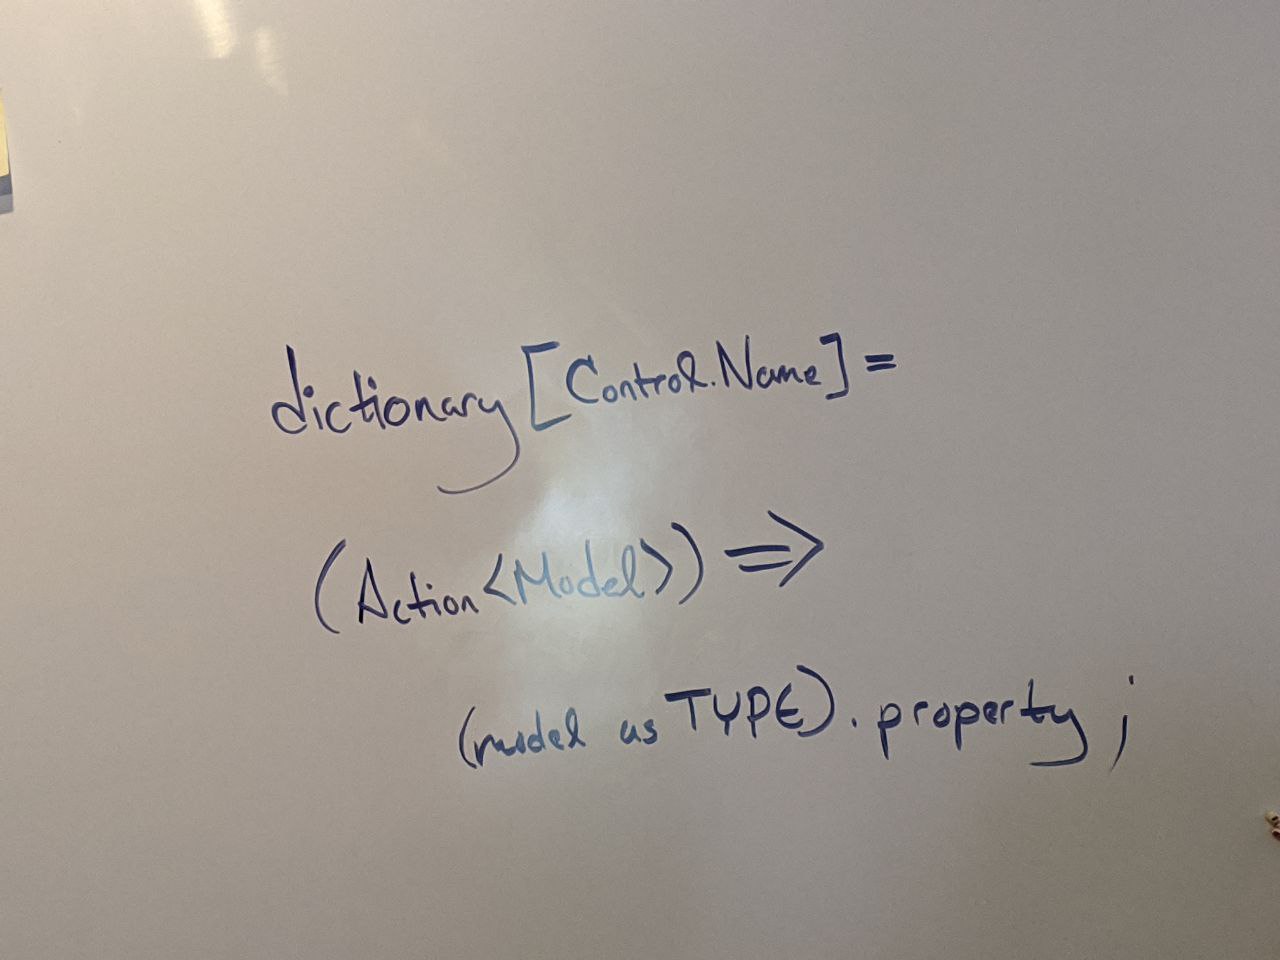 dictionary [Control.Name] =
(Action<Model>) =>
(model as TYPE).property;